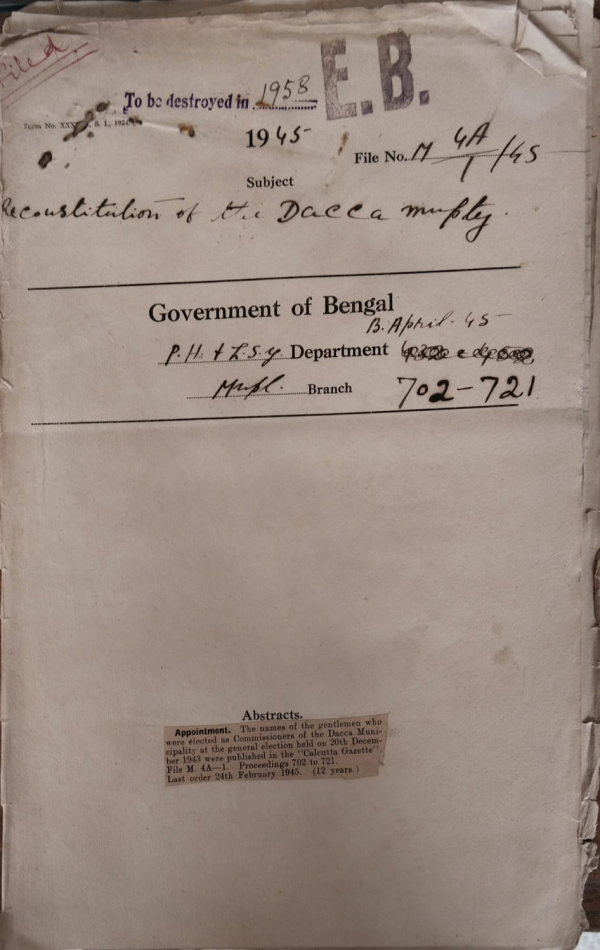 Filed.
To be destroyed in 1958
E.B.
1945
File No. M 4A/1/45
Subject
Reconstitution of the Dacca mupty.
Government of Bengal
B. April. 45
P.H. & L.S.G. Department
Mupl. Branch 702-721
Abstracts.
Appointment. The names of the gentlemen who
were elected as Commissioners of the Dacca Muni-
cipality at the general election held on 20th Decem-
ber 1943 were published in the "Calcutta Gazette".
File M. 4A—1. Proceedings 702 to 721.
Last order 24th February 1945. (12 years.)